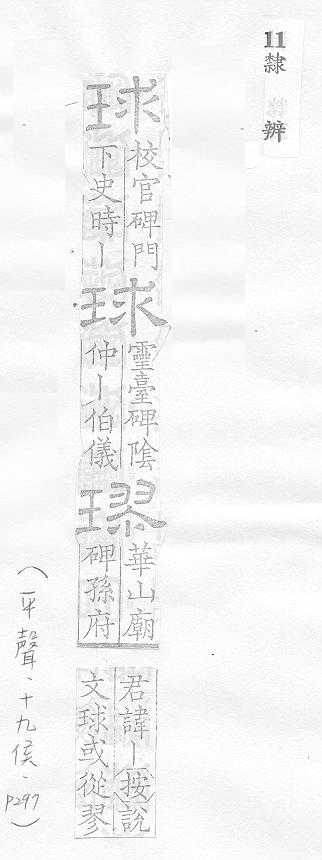 11隸辨
球
校官碑門
下史時丨
球
靈臺碑陰
仲丨伯儀
璆
華山廟
碑孫府
君諱丨按說
文球或從翏
(平聲、十九侯、P297)